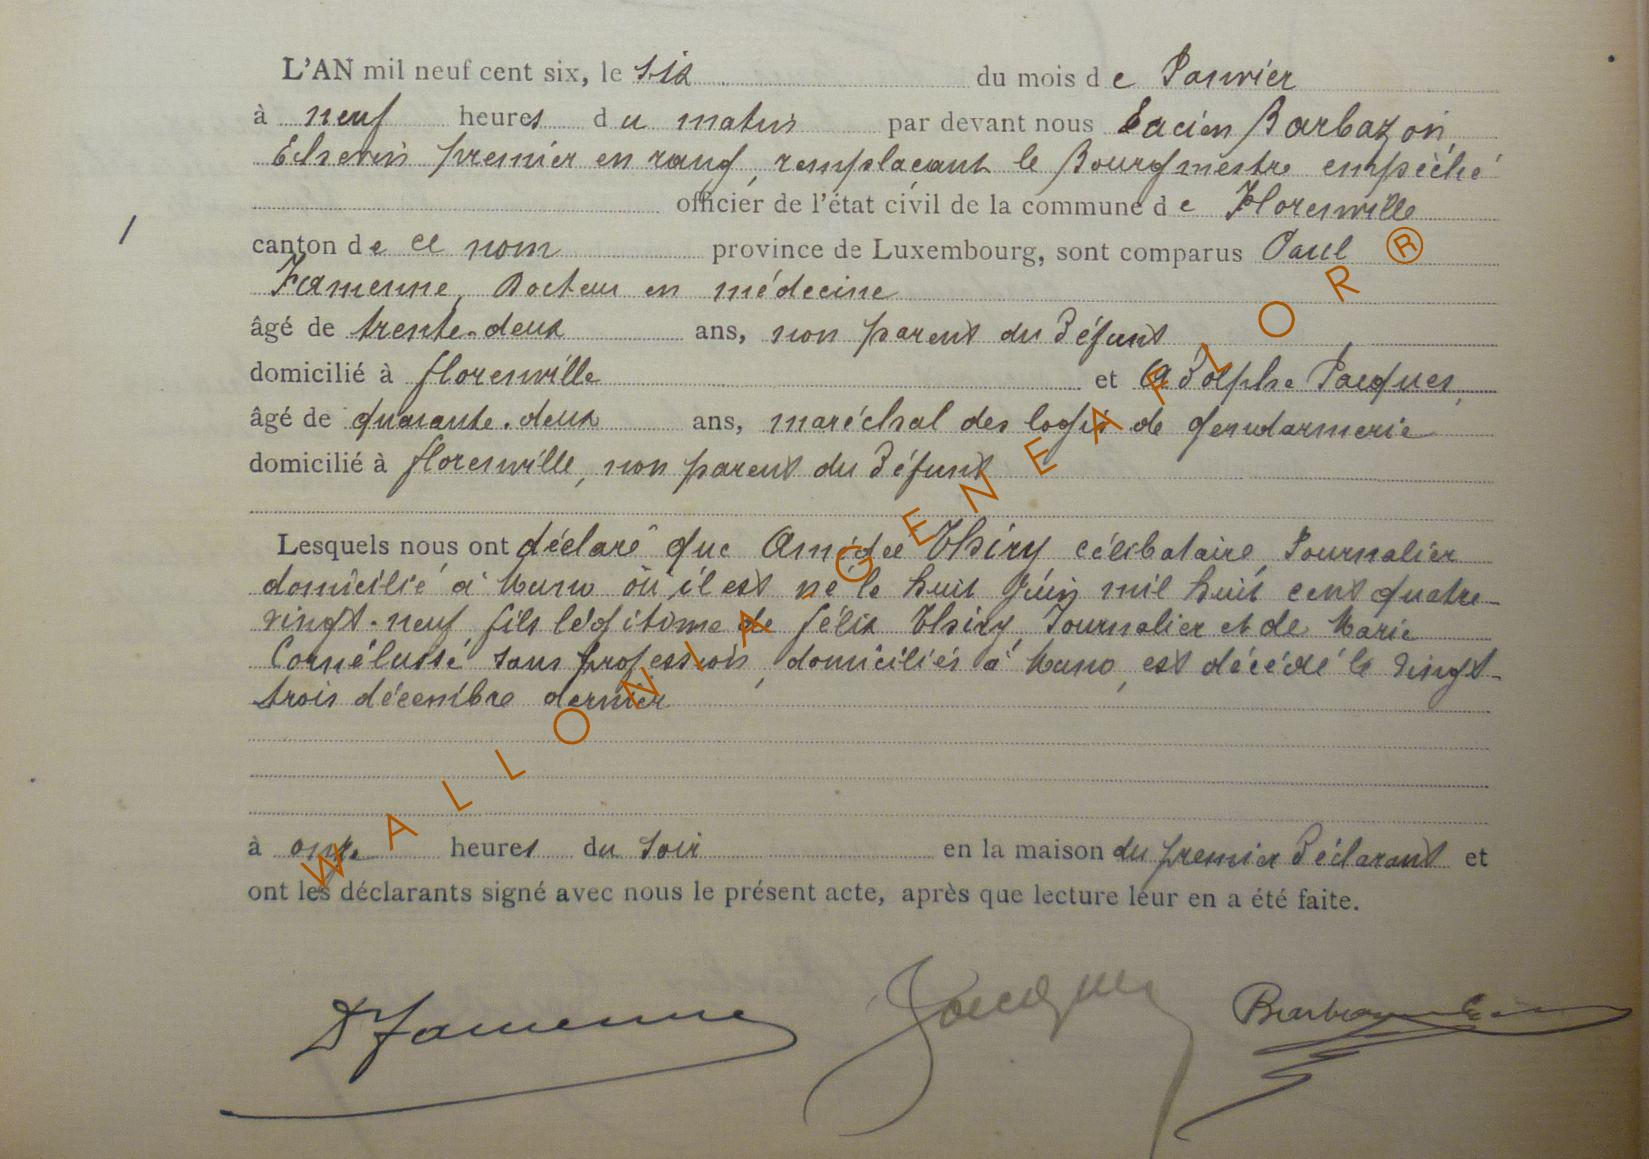 L'AN mil neuf cent six, le six du mois de Janvier
à neuf heures du matin par devant nous Lucien Barbazon,
Echevin premier en rang, remplaçant le Bourgmestre empêché
officier de l'état civil de la commune de Florenville
canton de ce nom province de Luxembourg, sont comparus Paul
Famenne, Docteur en médecine
âgé de trente-deux ans, non parent du défunt
domicilié à florenville et Adolphe Jacques,
âgé de quarante-deux ans, maréchal des logis de gendarmerie
domicilié à florenville, non parent du défunt
Lesquels nous ont déclaré que Amédée Thiry célibataire, Journalier
domicilié à Muno où il est né le huit Juin mil huit cent quatre-
vingt-neuf, fils légitime de félix Thiry, Journalier et de Marie
sans profession, domiciliés à Muno, est décédé le vingt-
trois décembre dernier
à onze heures du soir en la maison du premier déclarant et
ont les déclarants signé avec nous le présent acte, après que lecture leur en a été faite.
Dr Famenne Jacques Barbazon
WALLONIA - GENEAFLOR ®